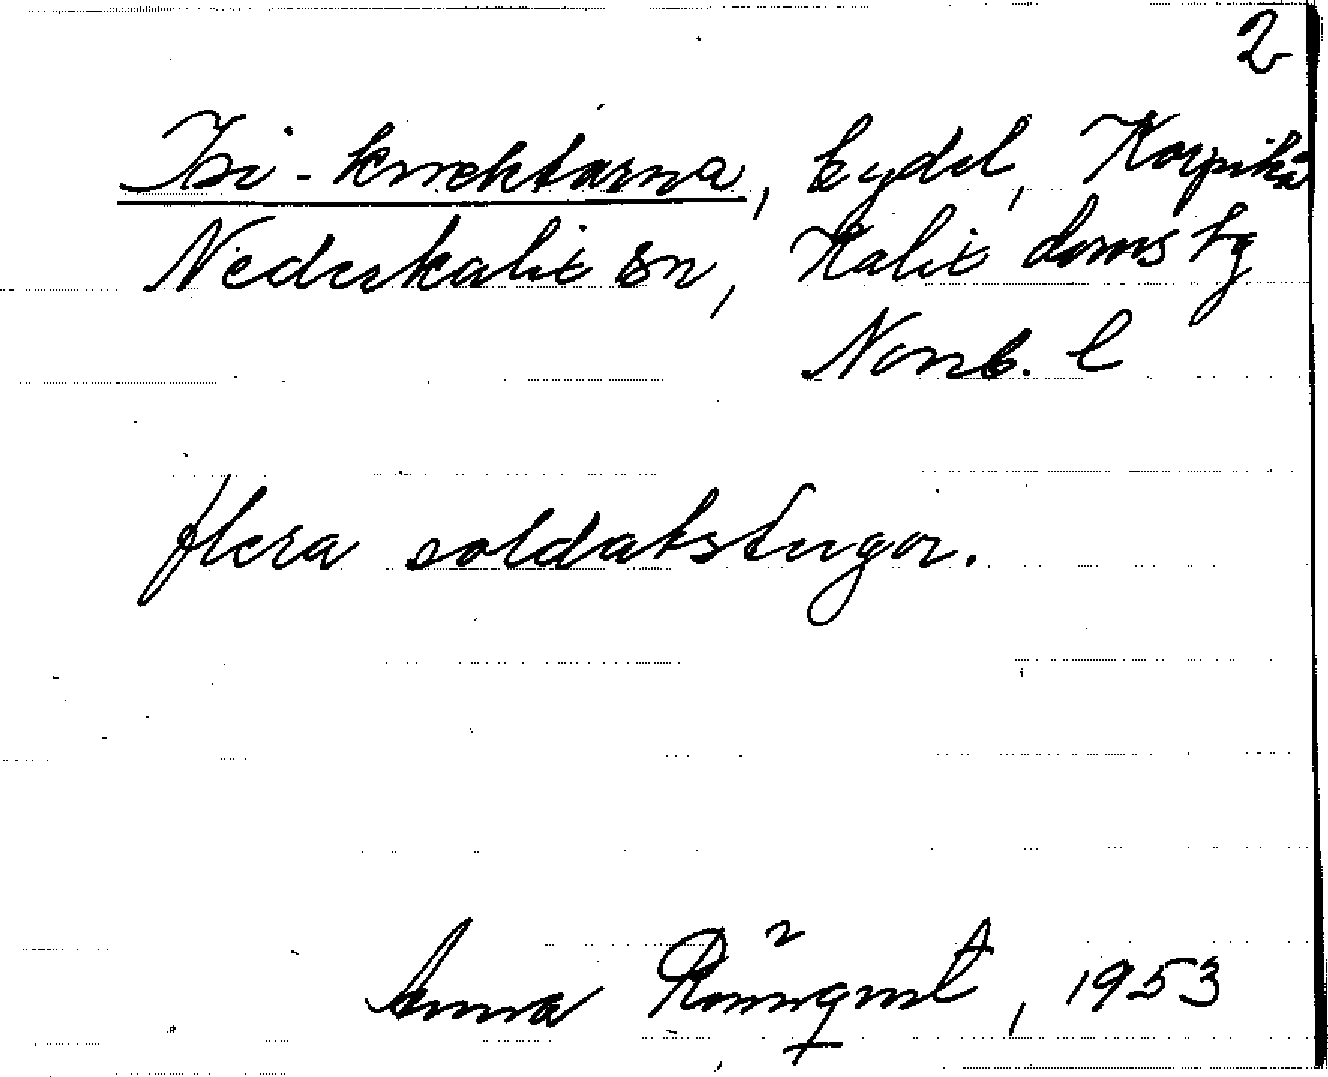 2
Isi-knektarna, bydel, Korpikå
Nederkalix sn, Kalix domsbg
Norrb. l
flera soldatstugor.
Anna Rönnqvist, 1953